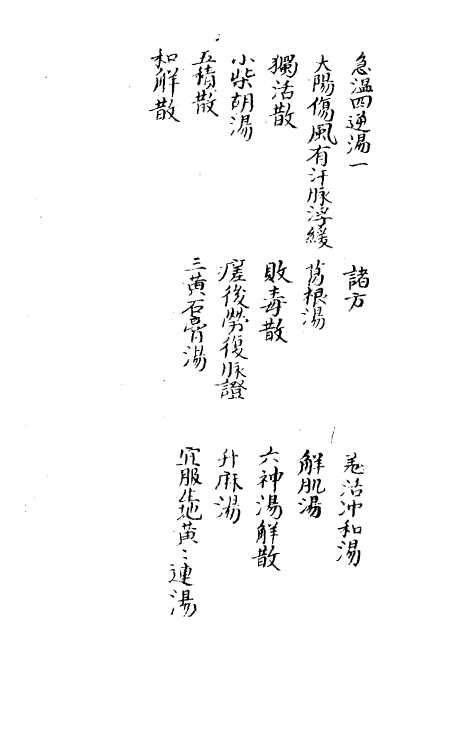 急溫四逆湯一
諸方
羗活冲和湯
大陽傷風有汗脉浮緩
葛根湯
解肌湯
獨活散
敗毒散
六神湯解散
小柴胡湯
瘥後勞復脉證
升麻湯
五積散
三黃石膏湯
宜服生地黃〻連湯
和解散